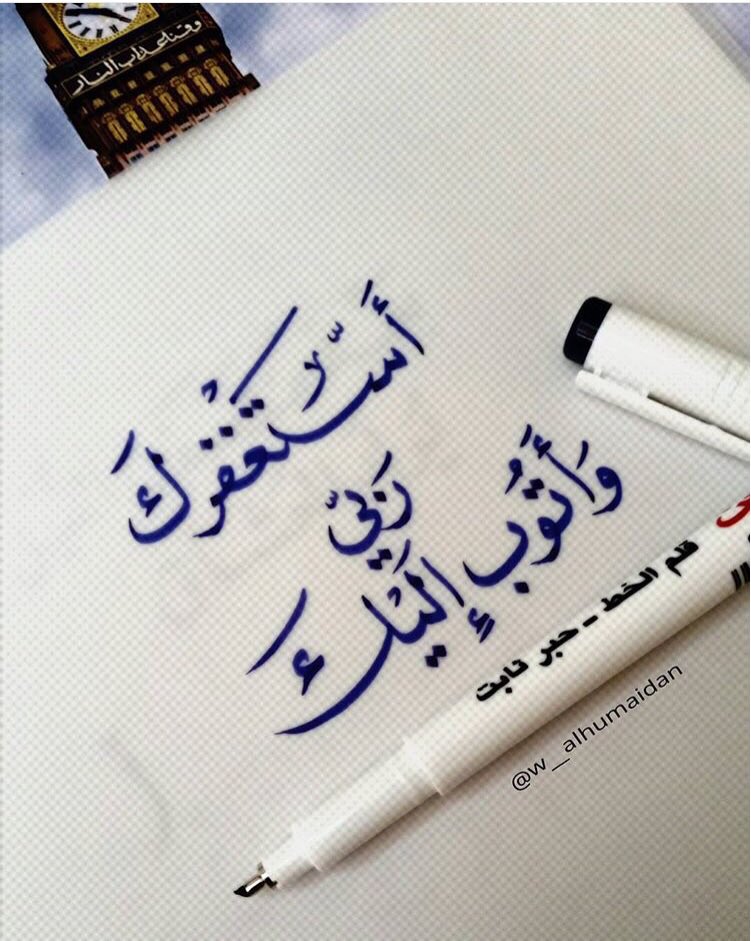 وقنا عذاب النار
أَسْتَغْفِرُكَ
رَبِّي
وَأَتُوبُ إِلَيْكَ
قلم الخط - حبر ثابت
@w__alhumaidan